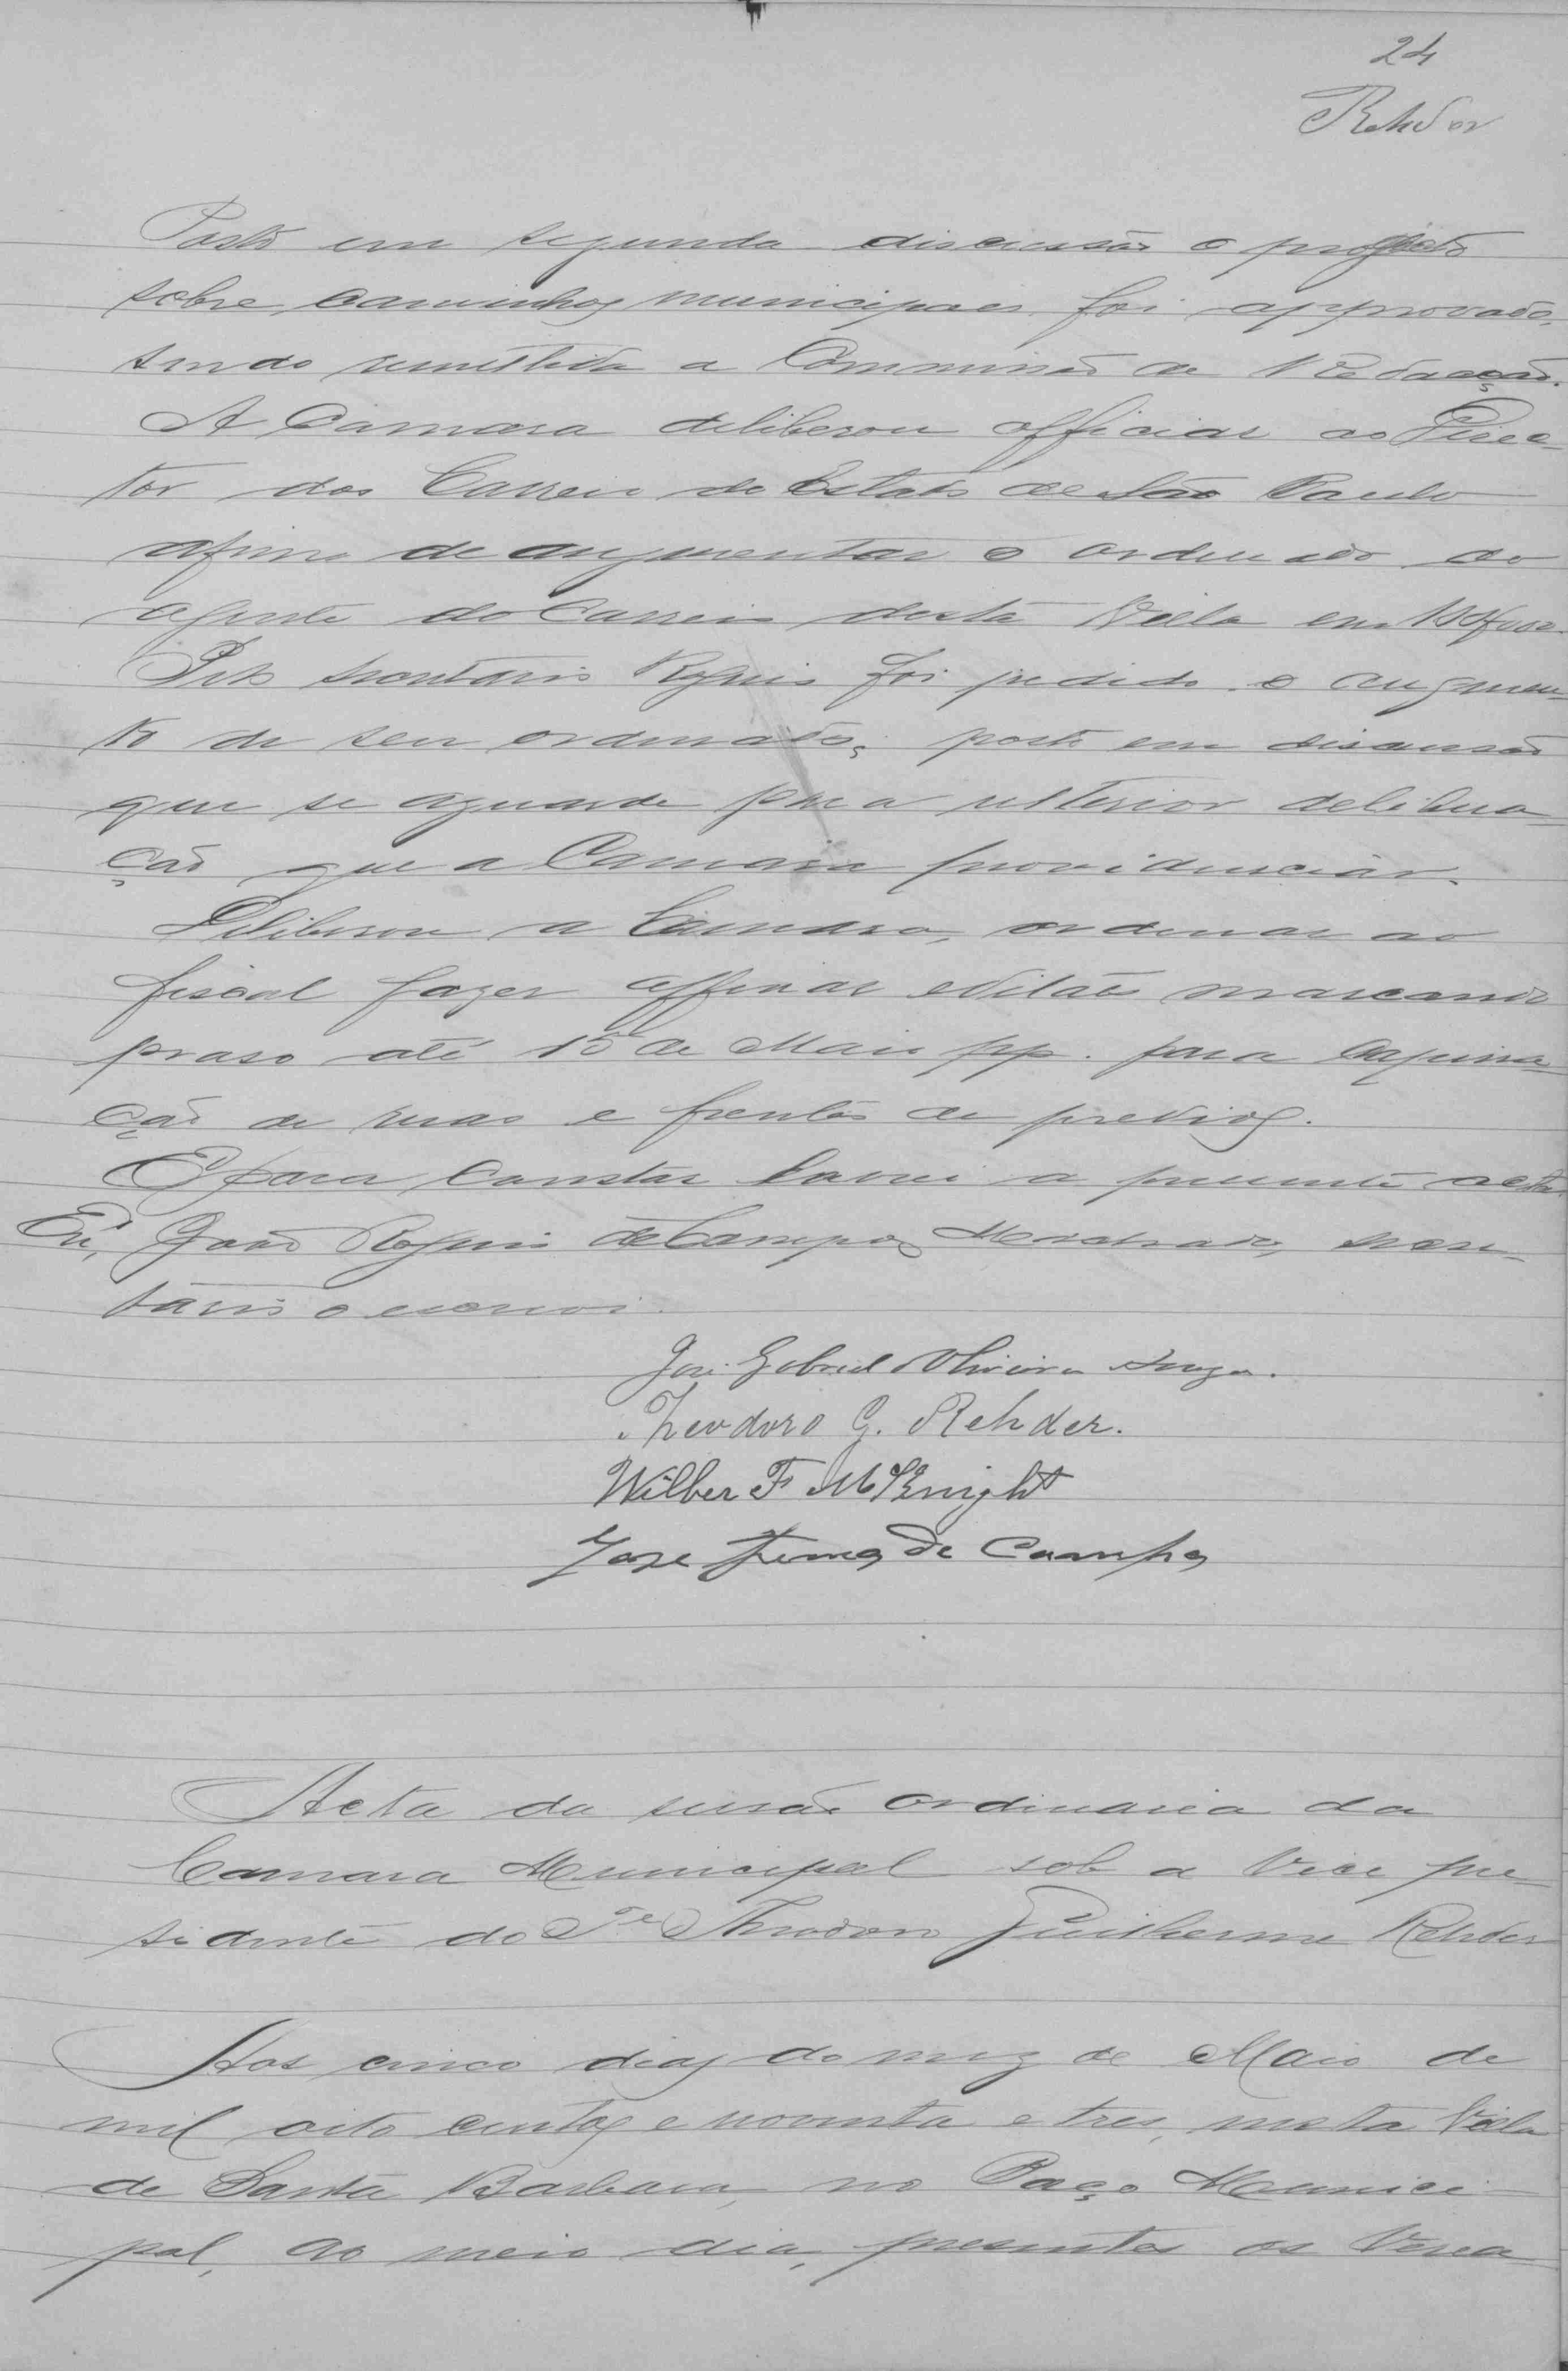 24
Rehder
Posto em segunda discussão o projecto
sobre caminhos municipaes foi approvado,
sendo remettida a Commissão de Redacção.
A Camara deliberou officiar ao Direc-
tor dos Correio do Estado de São Paulo
afim de augmentar o ordenado do
agente do Correio desta Villa em
Pelo secretario Reginó foi pedido o augmen-
to de seu ordenado; posto em discussão
que se aguarde para ulterior delibera-
ção que a Camara providenciar.
Deliberou a Camara, ordenar ao
fiscal fazer affixar editaes marcando
praso até 15 de Maio pp. para capina-
ção de ruas e frentes de predios.
E para constar lavrei a presente acta
Eu, João de Campos Machado, secre-
tario o escrevi.
José Gabriel Oliveira Souza.
Theodoro G. Rehder.
Wilber F McKnight
Jose de Campos
Acta da sessão ordinaria da
Camara Municipal sob a Vice pre-
sidente do Sr Theodoro Guilherme Rehder
Aos cinco dias do mez de Maio de
mil oito centos e noventa e tres, nesta Villa
de Santa Barbara, no Paço Munici-
pal, ao meio dia, presentes os Verea-